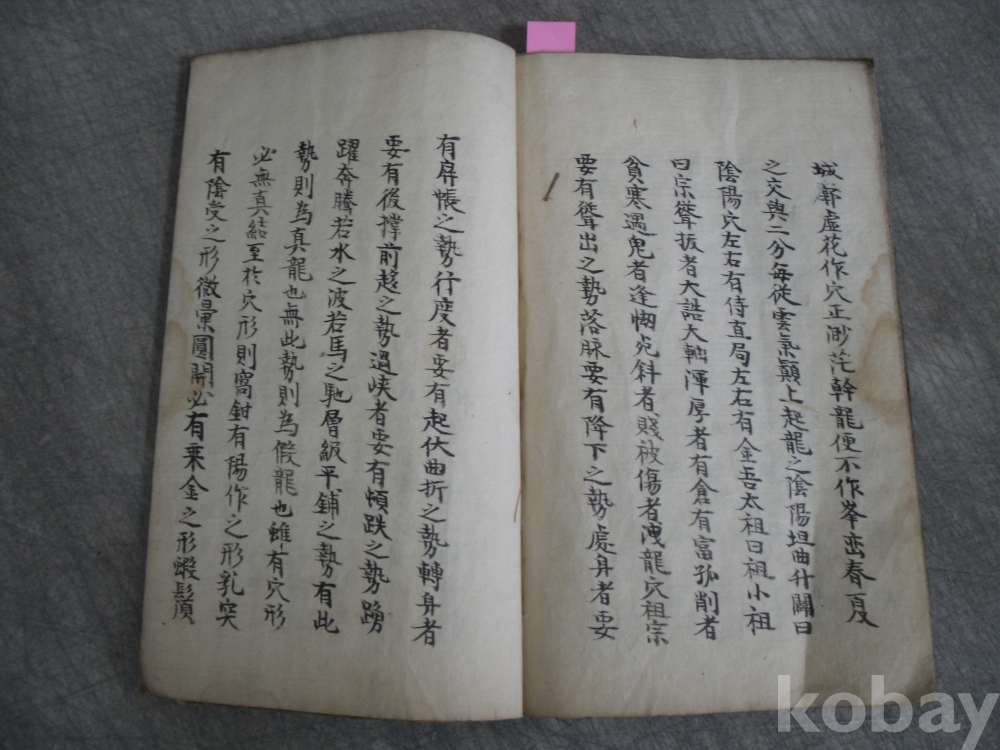 城郭虛花作穴正渺茫幹龍便不作峯巒春夏
之交與二分每從雲氣顛上起龍之陰陽坦曲升關曰
陰陽穴左右有侍直局左右有金吾太祖曰祖小祖
曰宗聳拔者大誥大軸渾厚者有倉有富孤削者
貧寒遇鬼者逢斜者賤被傷者洩龍穴祖宗
要有聳出之勢落脉要有降下之勢處身者要
有屛帳之勢行度者要有起伏曲折之勢轉身者
要有後撑前趍之勢過峽者要有頓跌之勢踴
躍奔騰若水之波若馬之馳層級平鋪之勢有此
勢則為真龍也無此勢則為假龍也雖有穴形
必無真結至於穴形則窩鉗有陽作之形乳突
有陰受之形微暈圓開必有乗金之形蝦鬚
kobay